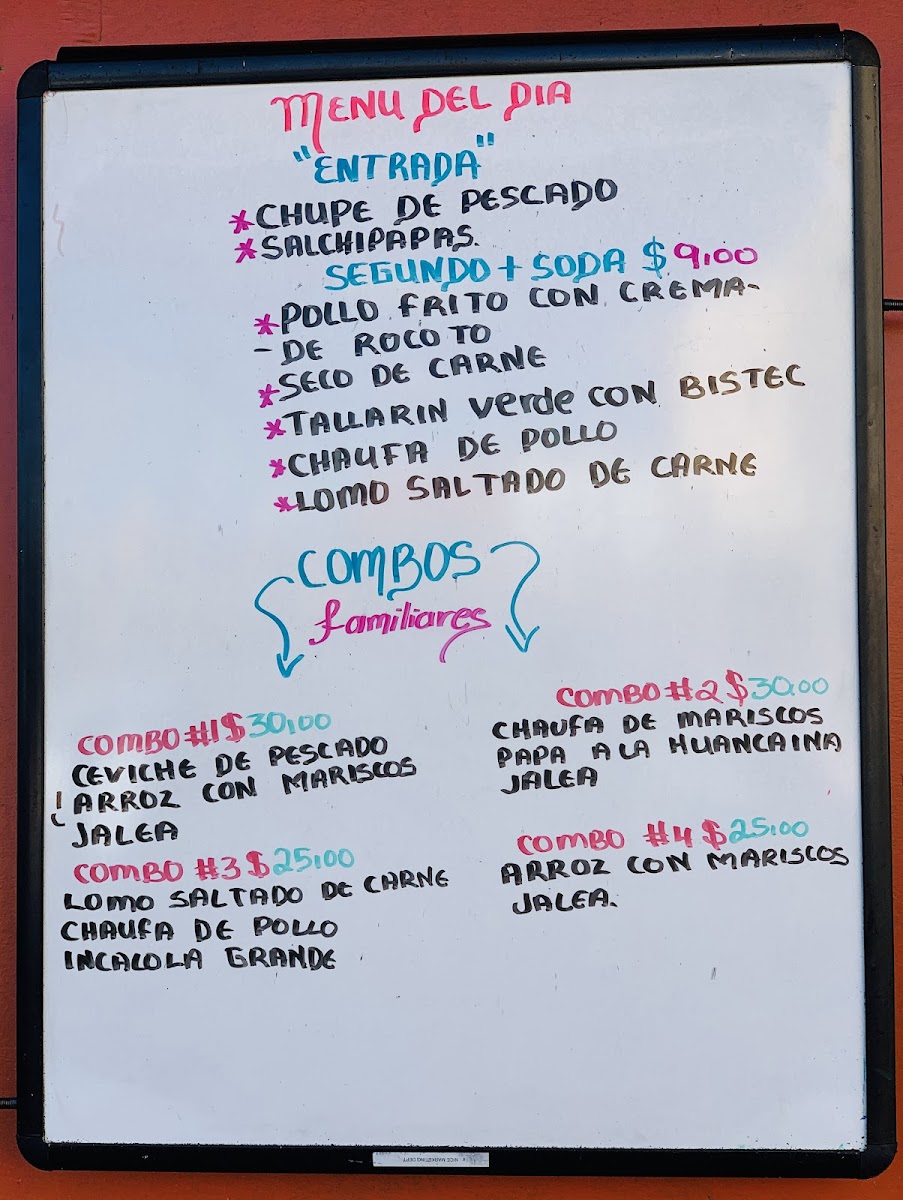 MENU DEL DIA
"ENTRADA"
*CHUPE DE PESCADO
*SALCHIPAPAS.
SEGUNDO + SODA $ 9,00
*POLLO FRITO CON CREMA-
- DE ROCOTO
*SECO DE CARNE
*TALLARIN verde CON BISTEC
*CHAUFA DE POLLO
*LOMO SALTADO DE CARNE
COMBOS
familiares
COMBO #1 $30,00
CEVICHE DE PESCADO
ARROZ CON MARISCOS
JALEA
COMBO #2 $30.00
CHAUFA DE MARISCOS
PAPA A LA HUANCAINA
JALEA
COMBO #3 $25,00
LOMO SALTADO DE CARNE
CHAUFA DE POLLO
INCACOLA GRANDE
COMBO #4 $25,00
ARROZ CON MARISCOS
JALEA.